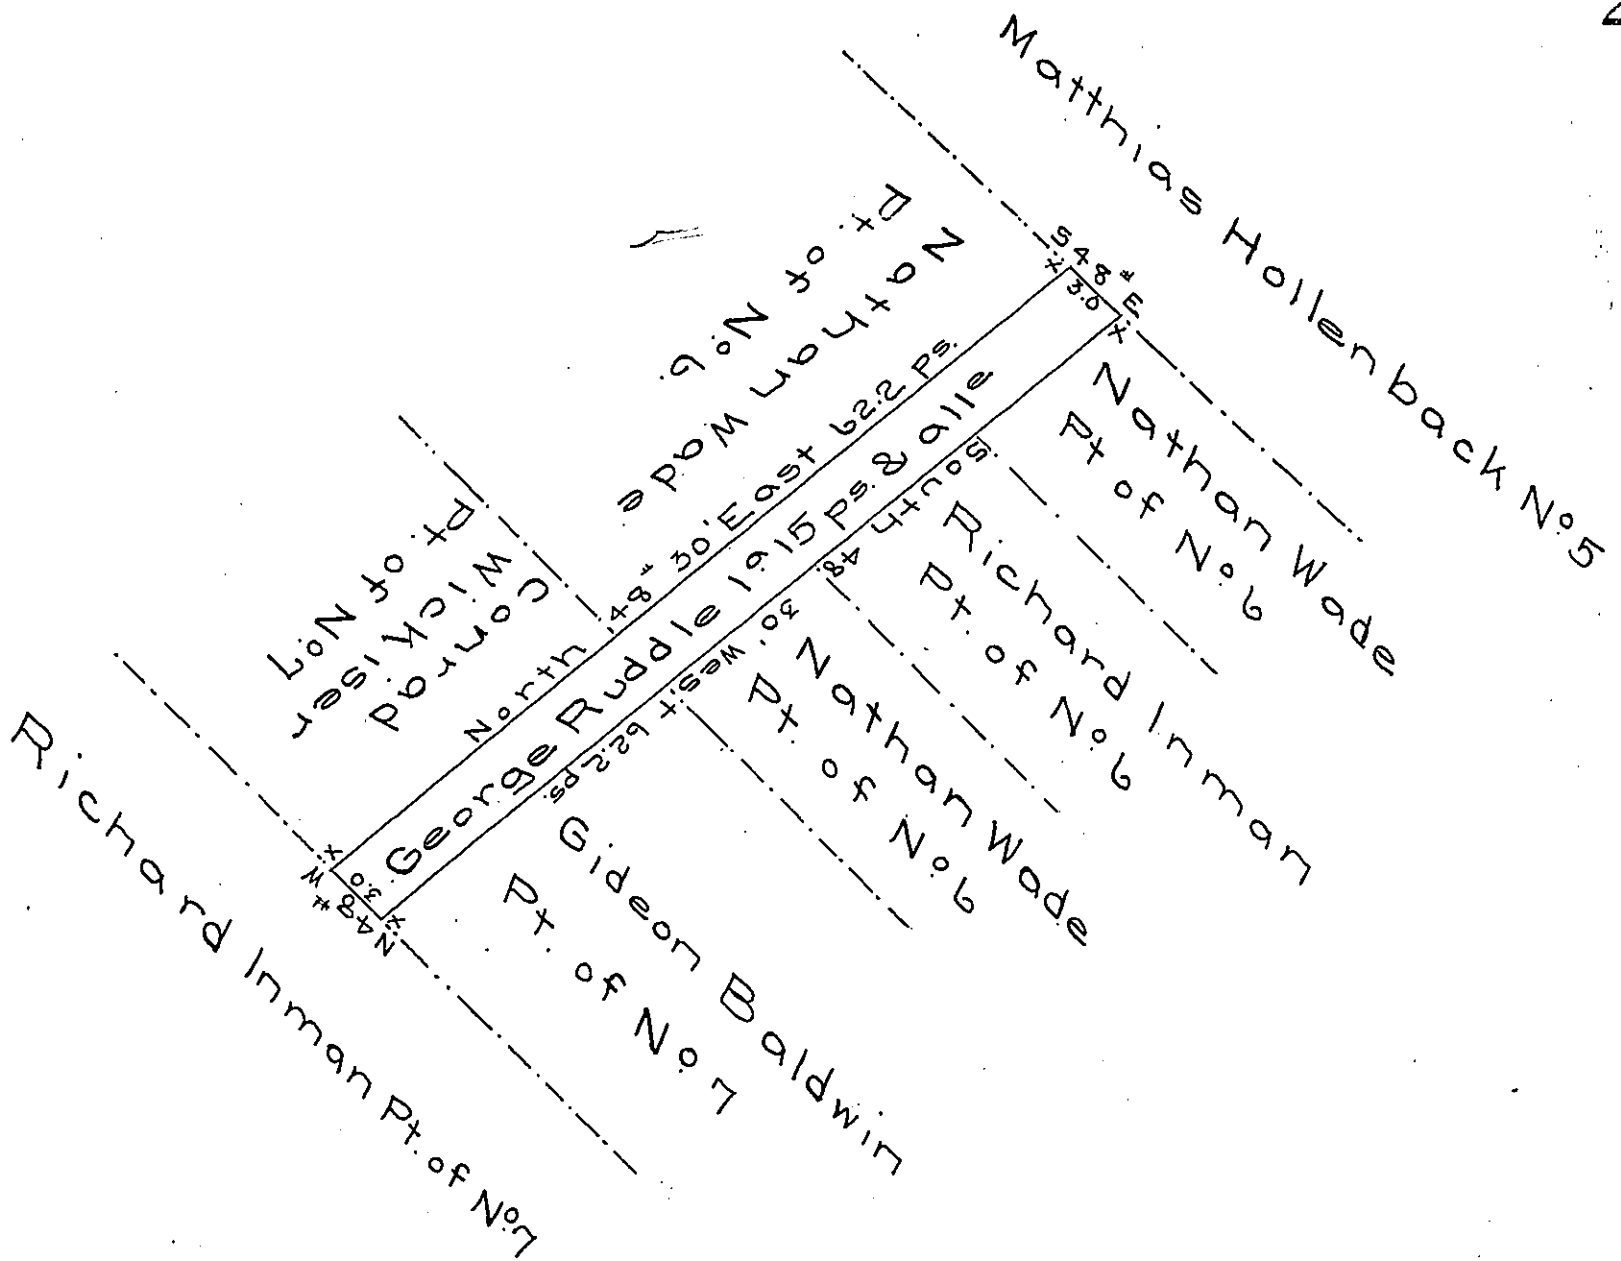 Matthias Hollenback No. 5
S 48ᵈ E
3.0
Nathan Wade
Pt. of No. 6
Conrad
Wickiser
Pt. of No. 7
North 48ᵈ 30' East 62.2 Ps.
George Ruddle 1 a. 15 Ps. & alle
South 48. 30' West 62.2 Ps.
Nathan Wade
Pt of No. 6
Richard Inman
Pt. of No. 6
Nathan Wade
Pt. of No. 6
Gideon Baldwin
Pt. of No. 7
N 48ᵈ W
3.0
Richard Inman Pt. of No. 7